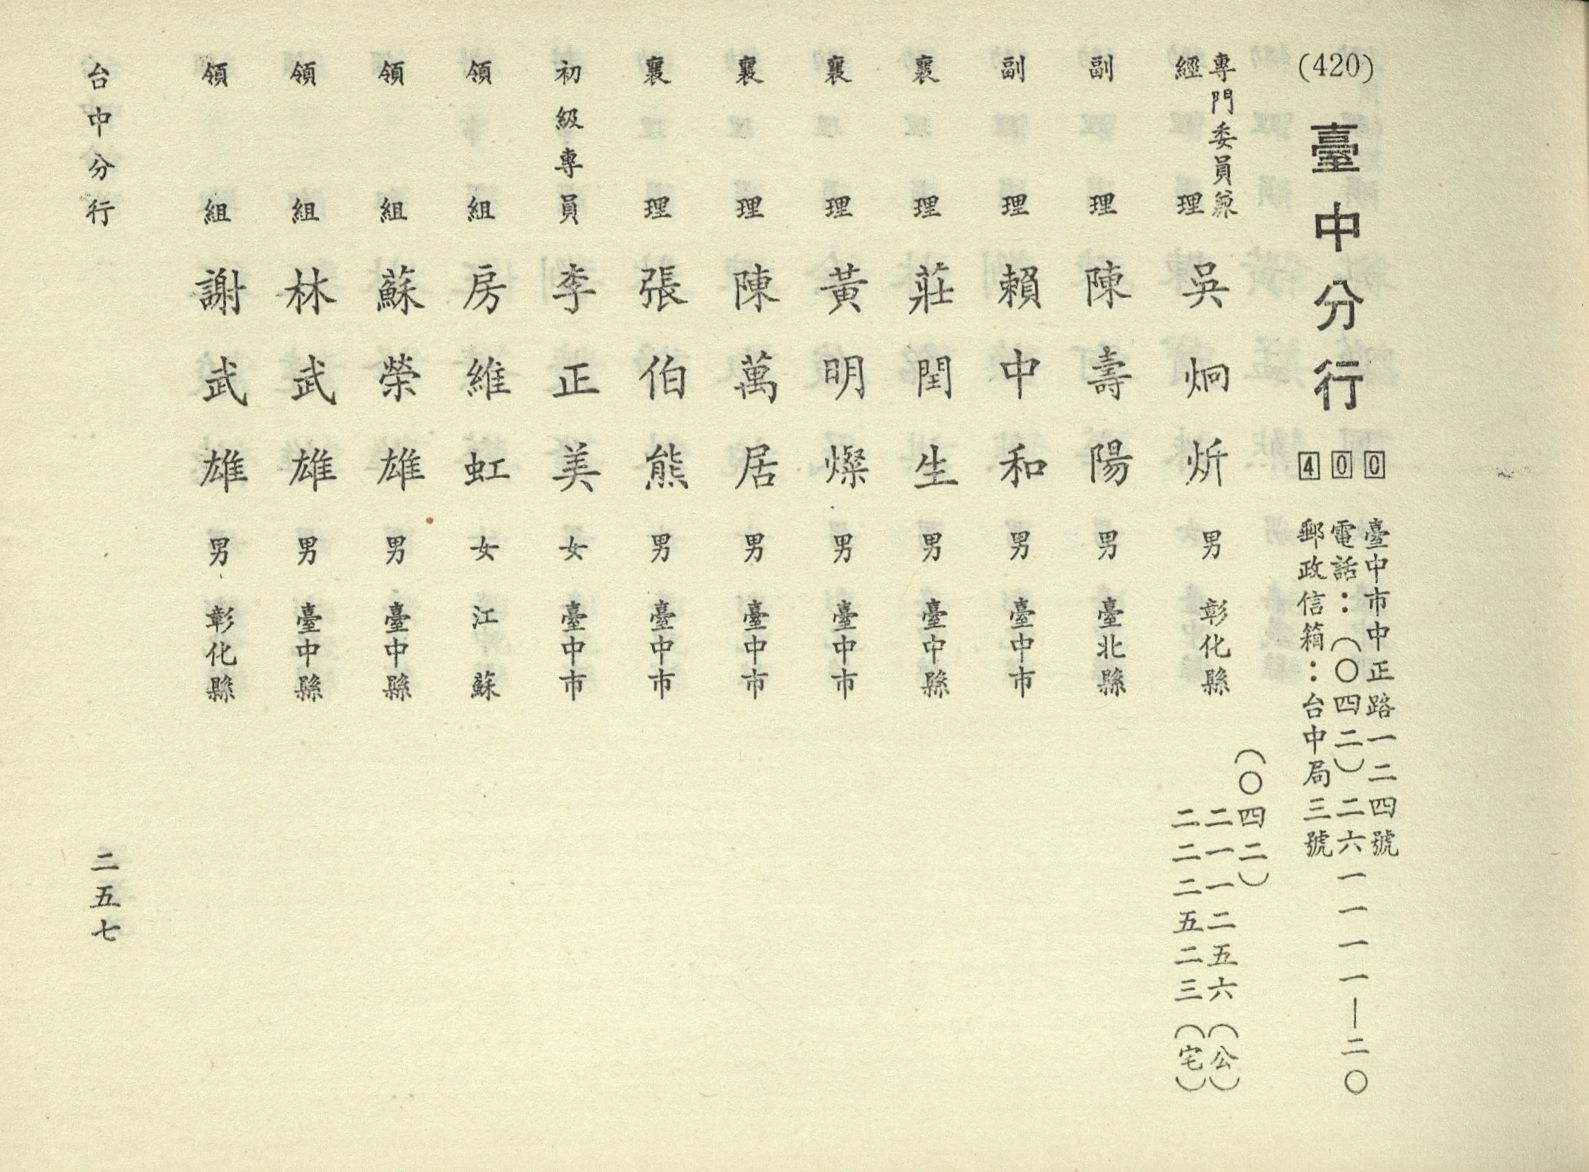 (420)
臺中分行
400
臺中市中正路一二四號
電話：(〇四二)二六一一一一—二〇
郵政信箱：台中局三號
專門委員兼
經理 吳炯炘 男 彰化縣
(〇四二)
二一一二五六(公)
二二二五二三(宅)
副理 陳壽陽 男 臺北縣
副理 賴中和 男 臺中市
襄理 莊閏生 男 臺中縣
襄理 黃明燦 男 臺中市
襄理 陳萬居 男 臺中市
襄理 張伯熊 男 臺中市
初級專員 李正美 女 臺中市
領組 房維虹 女 江蘇
領組 蘇榮雄 男 臺中縣
領組 林武雄 男 臺中縣
領組 謝武雄 男 彰化縣
台中分行
二五七